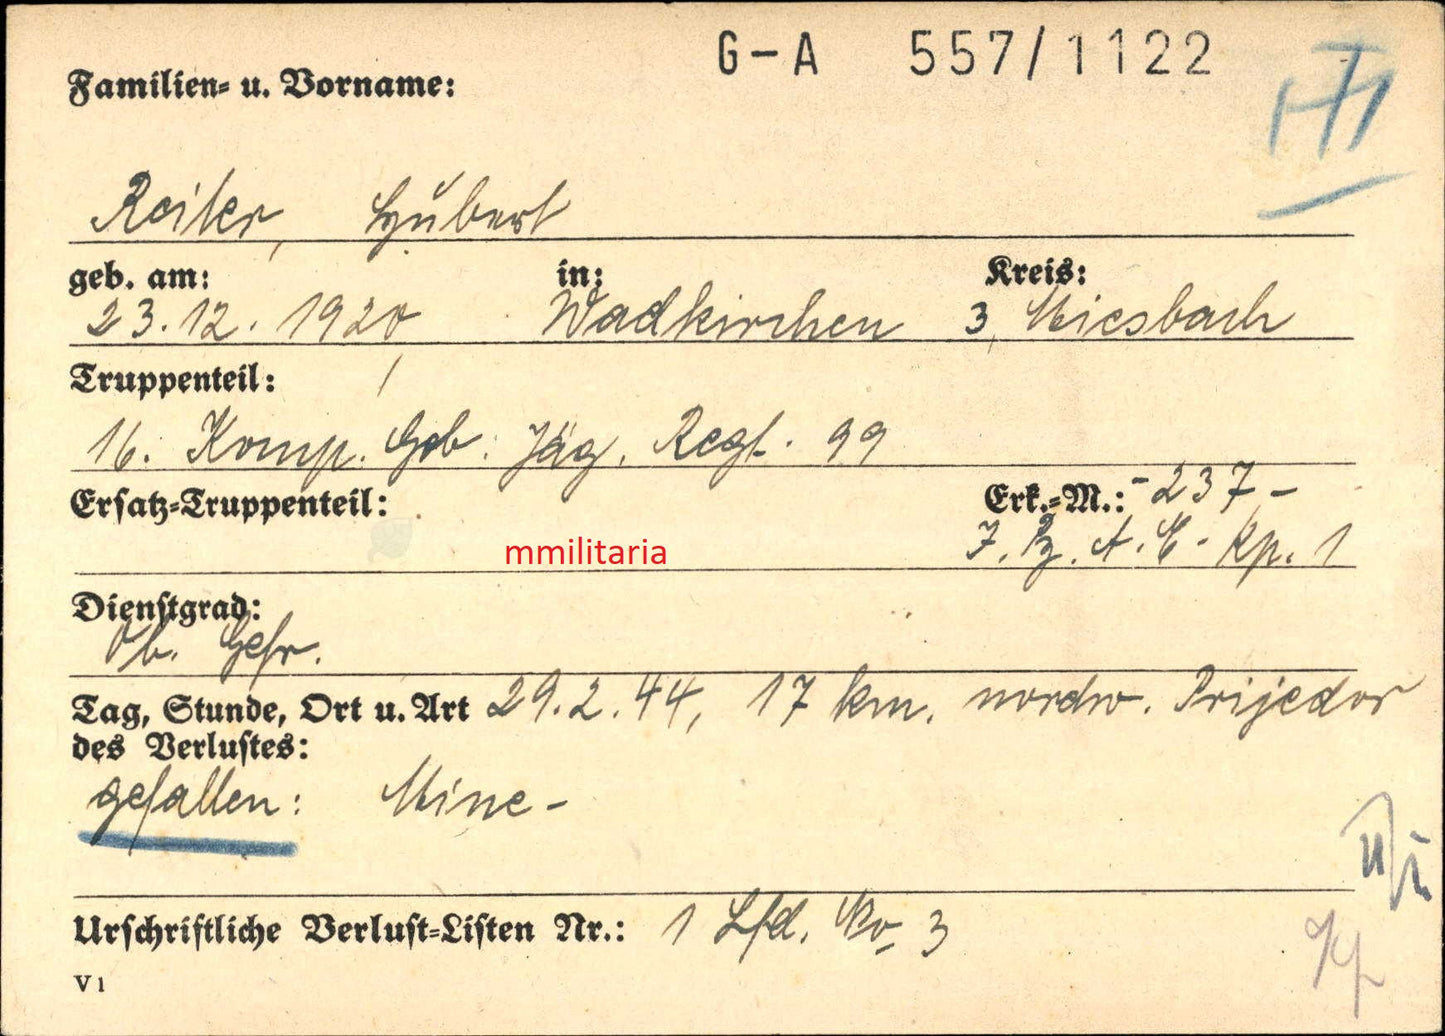 G-A 557/1122
Familien- u. Vorname:
Reiter, Hubert
geb. am: in: Kreis:
23.12.1920 Wadkirchen 3, Miesbach
Truppenteil:
16. Komp. Geb. Jäg. Regt. 99
Ersatz-Truppenteil: Erk.-M.: -237-
mmilitaria
7. Pz. A. E. - Kp. 1
Dienstgrad:
Ob. Gefr.
Tag, Stunde, Ort u. Art 29.2.44, 17 km. nordw. Prijedor
des Verlustes:
gefallen: Mine -
Urschriftliche Verlust-Listen Nr.: 1 Lfd. No 3
V 1